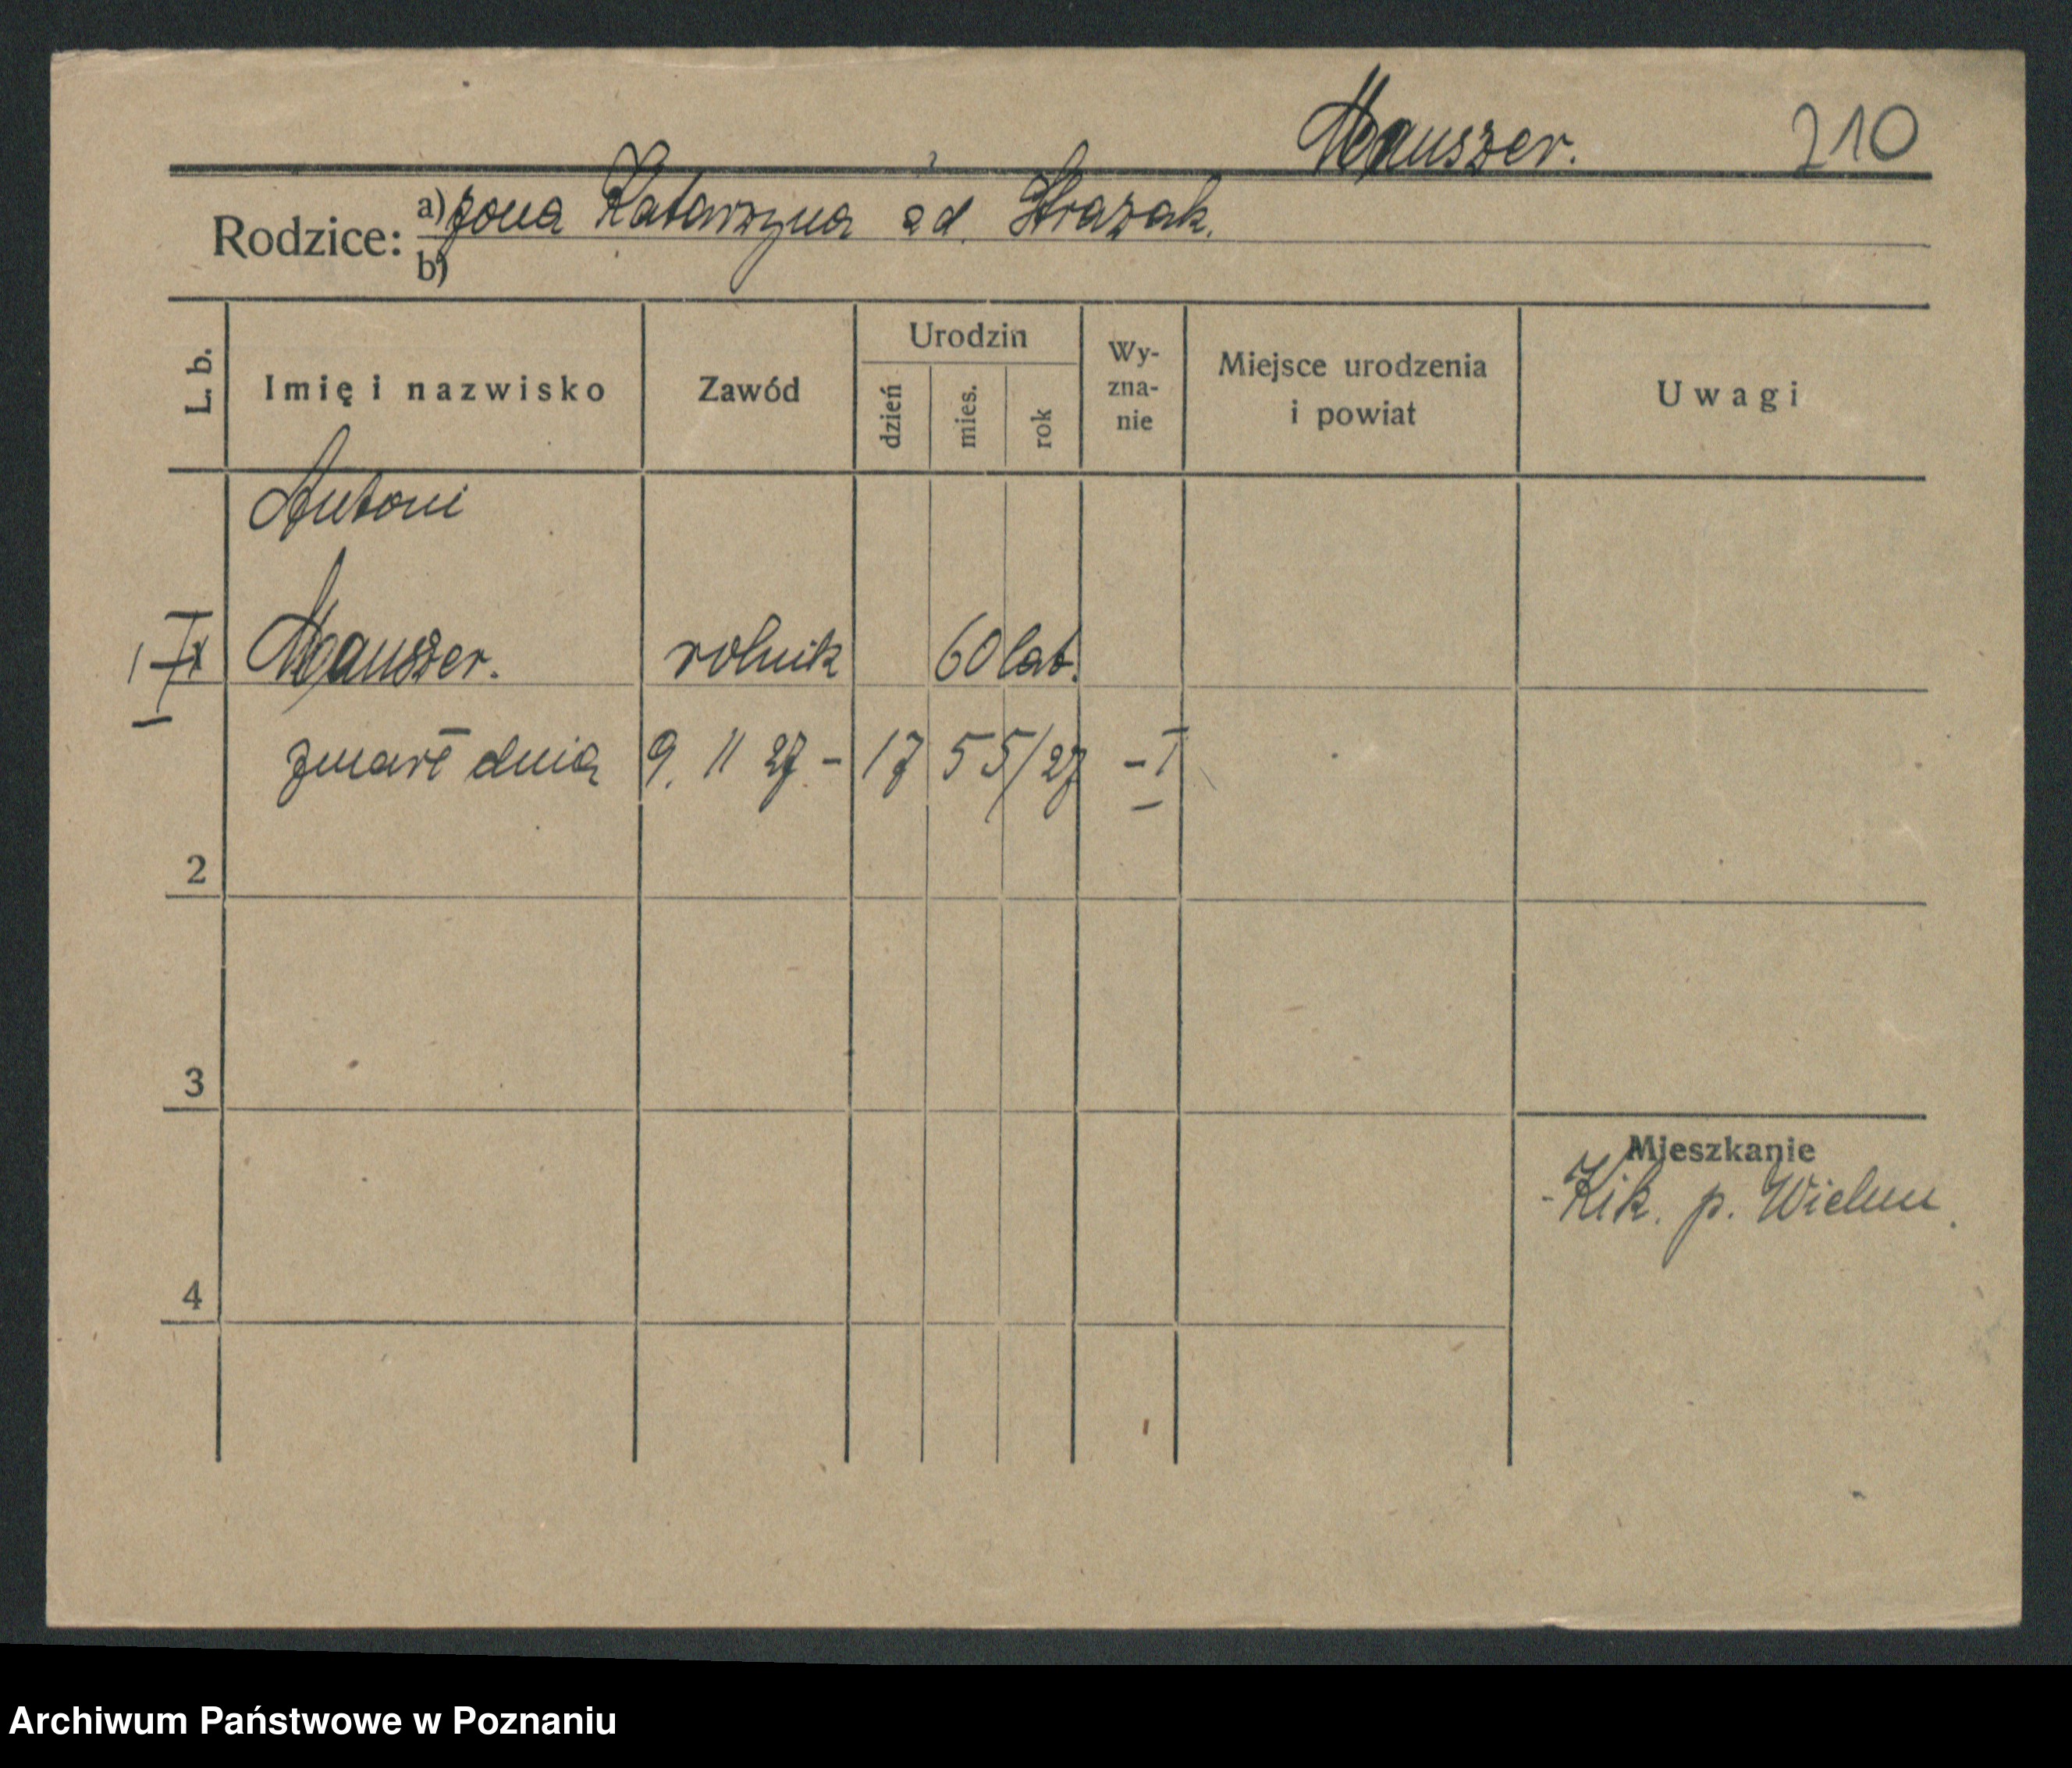 Mauszer. 210
Rodzice: a) żona Katarzyna zd. Strazak.
b)
L. b. Imię i nazwisko Zawód Urodzin dzień mies. rok Wy-zna-nie Miejsce urodzenia i powiat Uwagi
Antoni
Mauszer. rolnik 60 lat.
zmarł dnia 9. 11 27 - 17 55/27 - I
2
3
Mieszkanie
Kik. p. Wielun
4
Archiwum Państwowe w Poznaniu